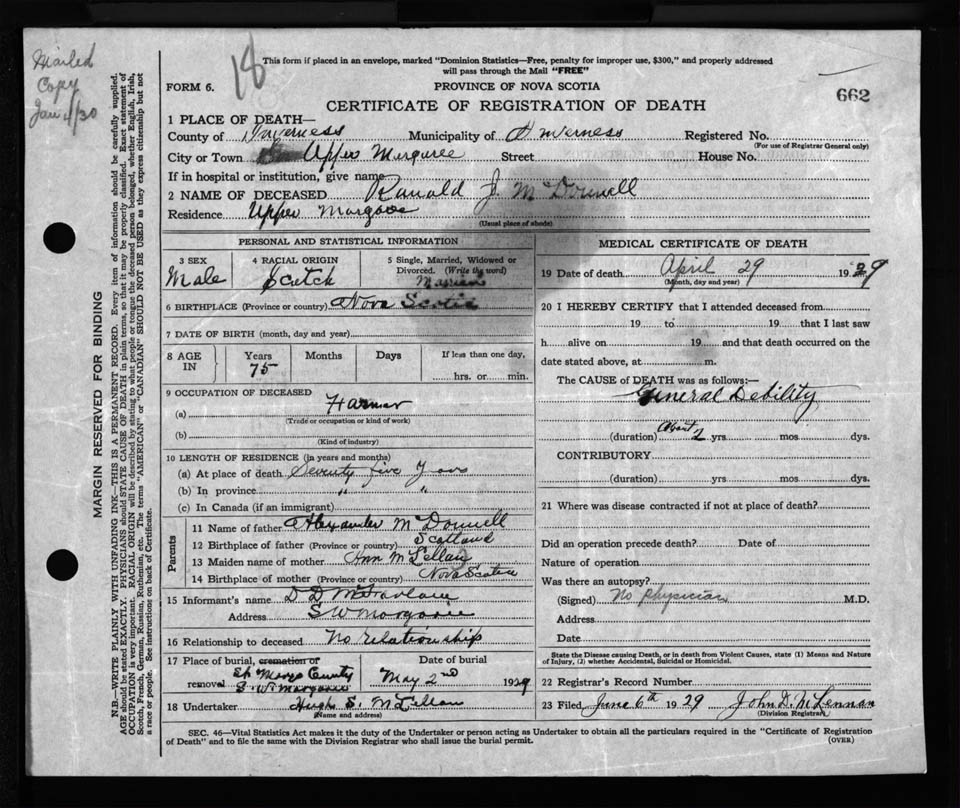 Mailed
Copy
Jan 4/30
18
This form if placed in an envelope, marked "Dominion Statistics—Free, penalty for improper use, $300," and properly addressed
will pass through the Mail "FREE"
FORM 6.
PROVINCE OF NOVA SCOTIA
662
CERTIFICATE OF REGISTRATION OF DEATH
1 PLACE OF DEATH—
County of Inverness Municipality of Inverness Registered No.
(For use of Registrar General only)
City or Town Upper Margaree Street House No.
If in hospital or institution, give name
2 NAME OF DECEASED Ranald J. McDonnell
Residence Upper Margaree
(Usual place of abode)
PERSONAL AND STATISTICAL INFORMATION
3 SEX 4 RACIAL ORIGIN 5 Single, Married, Widowed or
Divorced. (Write the word)
Male Scotch Married
6 BIRTHPLACE (Province or country) Nova Scotia
7 DATE OF BIRTH (month, day and year)
8 AGE IN Years Months Days If less than one day,
75 hrs. or min.
9 OCCUPATION OF DECEASED
(a) Farmer
(Trade or occupation or kind of work)
(b)
(Kind of industry)
10 LENGTH OF RESIDENCE (in years and months)
(a) At place of death Seventy five Years
(b) In province " "
(c) In Canada (if an immigrant)
Parents
11 Name of father Alexander McDonnell
12 Birthplace of father (Province or country) Scotland
13 Maiden name of mother Ann McLellan
14 Birthplace of mother (Province or country) Nova Scotia
15 Informant's name D D McFarlane
Address S W Margaree
16 Relationship to deceased No relationship
17 Place of burial, cremation or Date of burial
removal St Marys Cemetery
S. W. Margaree May 2nd 1929
18 Undertaker Hugh S. McLellan
(Name and address)
MEDICAL CERTIFICATE OF DEATH
19 Date of death April 29 1929
(Month, day and year)
20 I HEREBY CERTIFY that I attended deceased from
19 to 19 that I last saw
h alive on 19 and that death occurred on the
date stated above, at m.
The CAUSE of DEATH was as follows:—
General Debility
(duration) About 2 yrs mos. dys.
CONTRIBUTORY
(duration) yrs. mos. dys.
21 Where was disease contracted if not at place of death?
Did an operation precede death? Date of
Nature of operation
Was there an autopsy?
(Signed) No physician M.D.
Address
Date
State the Disease causing Death, or in death from Violent Causes, state (1) Means and
Nature of Injury, (2) whether Accidental, Suicidal or Homicidal.
22 Registrar's Record Number
23 Filed June 6th 1929 John D. McLennan
(Division Registrar)
SEC. 46—Vital Statistics Act makes it the duty of the Undertaker or person acting as Undertaker to obtain all the particulars required in the "Certificate of Registration
of Death" and to file the same with the Division Registrar who shall issue the burial permit.
(OVER)
MARGIN RESERVED FOR BINDING
N.B.—WRITE PLAINLY WITH UNFADING INK—THIS IS A PERMANENT RECORD. Every item of information should be carefully supplied.
AGE should be stated EXACTLY. PHYSICIANS should STATE CAUSE OF DEATH in plain terms, so that it may be properly classified. Exact statement of
OCCUPATION is very important. RACIAL ORIGIN will be described by stating to what people or tongue the deceased person belonged, whether English, Irish,
Scotch, French, German, Russian, Ruthenian, etc. The terms "AMERICAN" or "CANADIAN" SHOULD NOT BE USED as they express citizenship but not
a race or people. See instructions on back of Certificate.